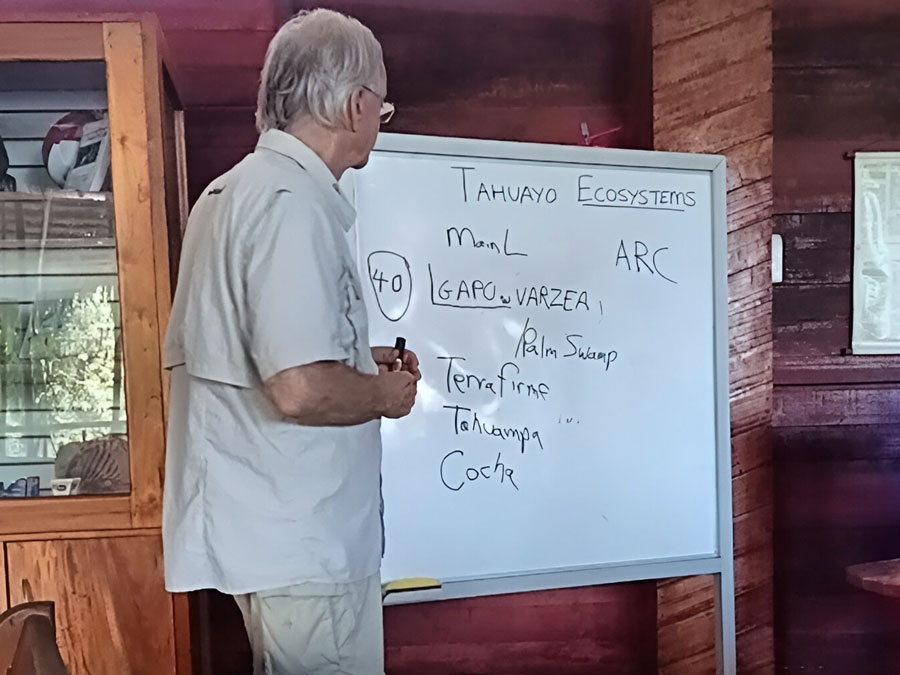 TAHUAYO ECOSYSTEMS
Main L
ARC
40
IGAPO VARZEA
/Palm Swamp
Terrafirme
Tahuampa
Cocha